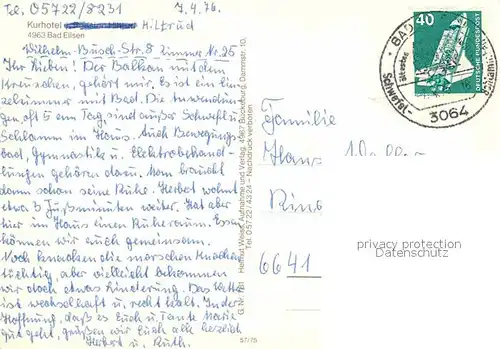 Tel. 05722/8231 7.4.76
Kurhotel Hilfrud
4963 Bad Eilsen
Wilhelm-Busch-Str. 8 Zimmer Nr. 25
Ihr Lieben! Der Balkon mit dem
Kreuzchen, gehört mir. Es ist ein Ein-
zelzimmer mit Bad. Die Anwendun-
gen oft 5 am Tag sind außer Schwefel u.
Schlamm im Haus. Auch Bewegungs-
bad, Gymnastik u. Elektrobehand-
lungen gehören dazu. Man braucht
dann schon seine Ruhe. Herbert wohnt
etwa 3 Fußminuten weiter. Hat aber
hier im Haus einen Ruheraum. Essen
können wir auch gemeinsam.
Noch die morschen Knochen
tüchtig, aber vielleicht bekommen
wir doch etwas Linderung. Das Wetter
ist wechselhaft u. recht kalt. In der
Hoffnung, daß es Euch u. Tante Marie
gut geht, grüßen wir Euch alle herzlich
Herbert u. Ruth.
G. Nr. Helmut Weiss, Aufnahme und Verlag, 4967 Bückeburg, Dammstr. 10,
Tel. 05722/4324 - Nachdruck verboten
57/75
40
DEUTSCHE BUNDESPOST
BAD
Ältestes
Schwefel-
3064
Familie
Hans
6641
PRIVACY PROTECTION
Datenschutz